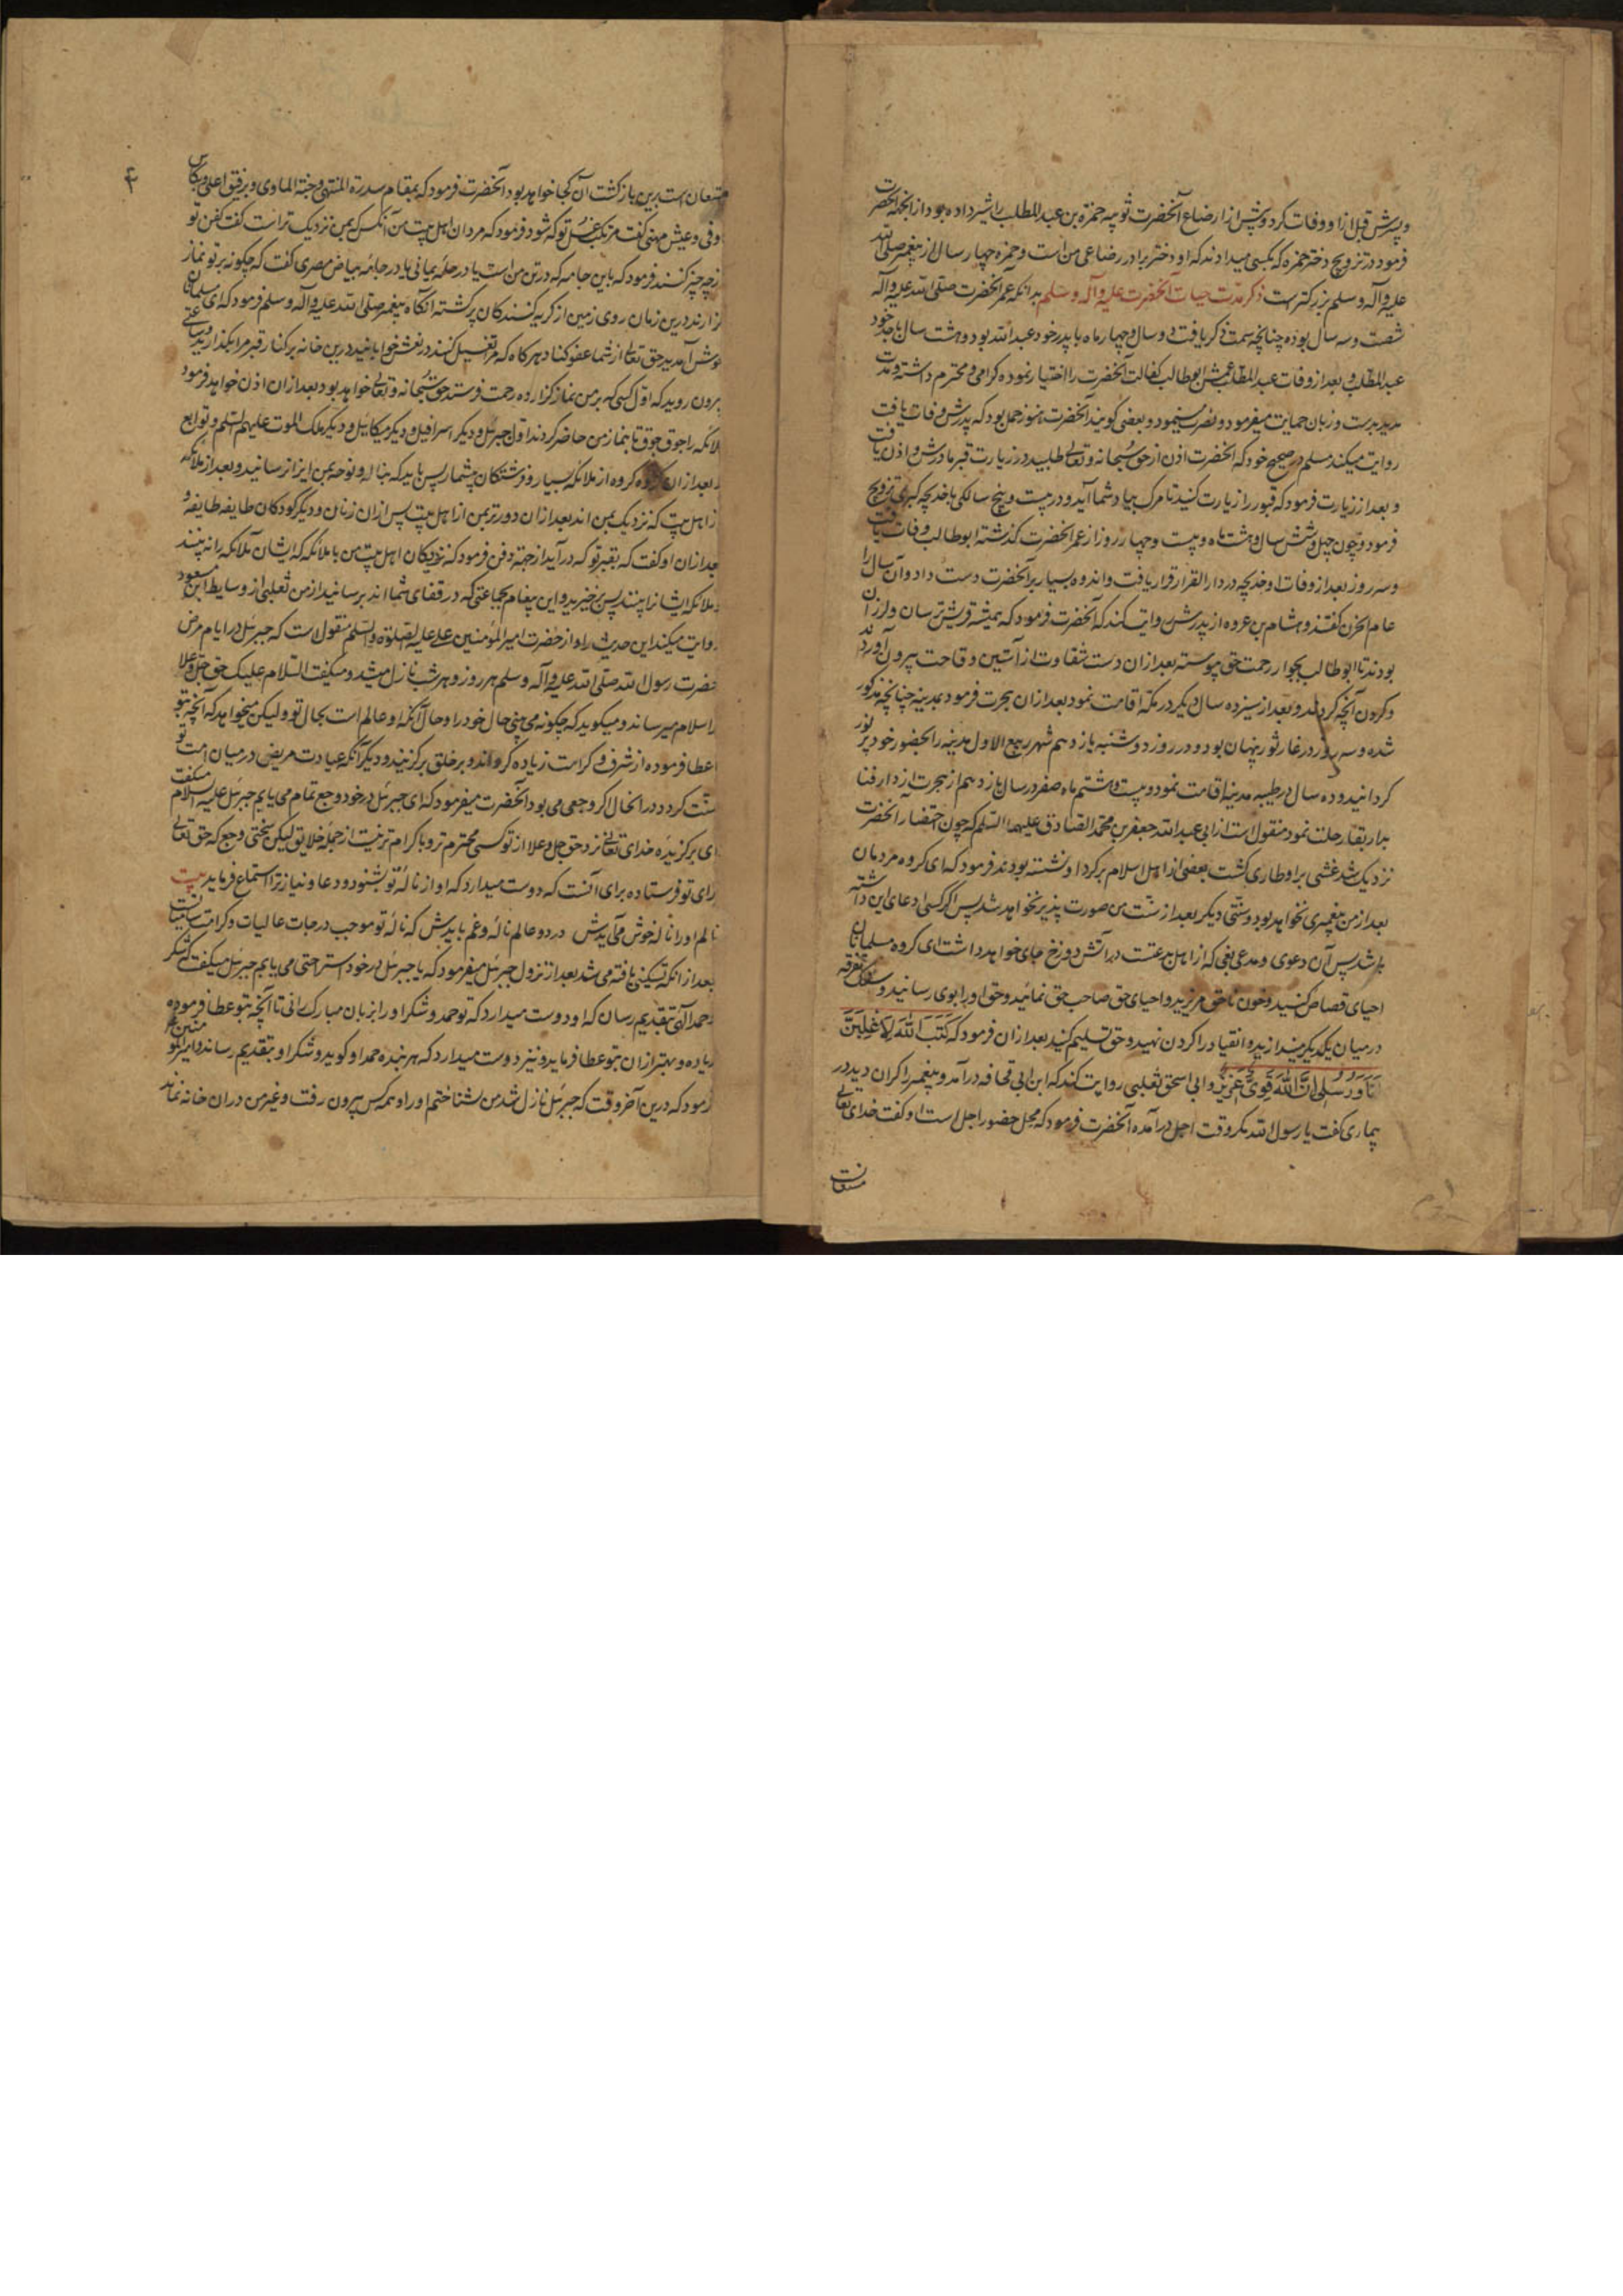 و پسرش قبل ازاو وفات کرد و پیش از ارضاع آنحضرت ثویبه حمزة بن عبد المطلب را شیر داده بود از انجمله آنحضرت
فرمود در تزویج دختر حمزه که بکسی میدادند که او دختر برادر رضاعی من است و حمزه چهار سال از پیغمبر صلی الله
علیه و آله و سلم بزرکتر است ذکر مدت حیات آنحضرت علیه و آله و سلم بدانکه عمر آنحضرت صلی الله علیه و آله
شصت و سه سال بوده چنانچه سمت ذکر یافت دو سال و چهار ماه با پدر خود عبد الله بود و هشت سال با جد خود
عبد المطلب و بعد از وفات عبد المطلب عمش ابو طالب کفالت آنحضرت را اختیار نموده کرامی و محترم داشته و مدت
مدید بدست و زبان حمایت میفرمود و نصرت مینمود و بعضی کویند آنحضرت هنوز حمل بود که پدرش وفات یافت
روایت میکند مسلم در صحیح خود که آنحضرت اذن از حق سبحانه و تعالی طلبید در زیارت قبر مادرش و اذن یافت
و بعد از زیارت فرمود که قبور را زیارت کنید تا مرک بیاد شما آید و در بیست و پنج سالکی با خدیجه کبری تزویج
فرمود و چون چهل و شش سال و هشت ماه و بیست و چهار روز از عمر آنحضرت کذشته ابو طالب وفات یافت
و سه روز بعد از وفات او خدیجه در دار القرار قرار یافت و اندوه بسیار بر آنحضرت دست داد و آن سال را
عام الحزن کفتند و هشام بن عروه از پدرش روایت کند که آنحضرت فرمود که همیشه قریش ترسان و لرزان
بودند تا ابو طالب بجوار رحمت حق پیوسته بعد از ان دست شقاوت از آستین وقاحت بیرون آوردند
و کردن آنچه کردند و بعد از سیزده سال دیکر در مکه اقامت نمود بعد از ان هجرت فرمود بمدینه چنانچه مذکور
شده و سه روز در غار ثور پنهان بود و در روز دوشنبه یازدهم شهر ربیع الاول مدینه را بحضور خود پر نور
کردانید و ده سال در طیبه مدینه اقامت نمود و بیست و هشتم ماه صفر در سال یازدهم از هجرت از دار فنا
بدار بقا رحلت نمود منقول است از ابی عبد الله جعفر بن محمد الصادق علیهما السلم که چون احتضار آنحضرت
نزدیک شد غشی بر او طاری کشت بعضی از اهل اسلام بر کرد او نشسته بودند فرمود که ای کروه مردمان
بعد از من پیغمبری نخواهد بود و سنتی دیکر بعد از سنت من صورت پذیر نخواهد شد پس اکر کسی ادعای این داشته
باشد پس آن دعوی و مدعی بغی که از اهل بدعتست در آتش دوزخ جای خواهد داشت ای کروه مسلمانان
احیای قصاص کنید و خون ناحق مریزید و احیای حق صاحب حق نمائید و حق او را بوی رسانید و تفرقه
در میان یکدیکر میندازید و انقیاد را کردن نهید و حق تسلیم کنید بعد از ان فرمود که کَتَبَ اللهُ لَاَغْلِبَنَّ
اَنَا وَ رُسُلی اِنَّ اللهَ قَوِیٌّ عَزیزٌ و ابی اسحق ثعلبی روایت کند که ابن ابی قحافه درآمد و پیغمبر را کران دید در
بیماری کفت یا رسول الله مکر وقت اجل درآمده آنحضرت فرمود که محل حضور اجل است او کفت خدای تعالی
مستعان است
۴
مستعان است برین بازکشت آن کجا خواهد بود آنحضرت فرمود که بمقام سدرة المنتهی و جنة الماوی و برفیق اعلی و بکاس
اوفی و عیش مهنی کفت مرتکب غسل تو که شود فرمود که مردان اهل بیت من آنکس که بمن نزدیک تر است کفت کفن تو
از چه چیز کنند فرمود که باین جامه که در تن من است یا در حله یمانی یا در جامه بیاض مصری کفت که چکونه بر تو نماز
کزارند درین زمان روی زمین از کریه کنندکان پر کشته آنکاه پیغمبر صلی الله علیه و آله و سلم فرمود که ای مسلمانان
خوش آمدید حق تعالی از شما عفو کناد هر کاه که مرا تغسیل کنند در نعش خوابانید درین خانه بر کنار قبر مرا بکذارید و ساعتی
بیرون روید که اول کسی که بر من نماز کزارد و رحمت فرستد حق سبحانه و تعالی خواهد بود بعد از ان اذن خواهد فرمود
ملائکه را جوق جوق تا بنماز من حاضر کردند اول جبرئیل و دیکر اسرافیل و دیکر میکائیل و دیکر ملک الموت علیهم السلم و توابع
بعد از ان کروه کروه از ملائکه بسیار و فرشتکان بیشمار پس باید که بناله و نوحه بمن ایذا نرسانید و بعد از ملائکه
از اهل بیت که نزدیک بمن اند بعد از ان دورتر بمن از اهل بیت پس ازان زنان و دیکر کودکان طایفه طایفه و
بعد از ان او کفت که بقبر تو که درآید از جهة دفن فرمود که نزدیکان اهل بیت من با ملائکه که ایشان ملائکه را نه بینند
و ملائکه ایشان را بینند پس برخیزید و این پیغام بجماعتی که در قفای شما اند برسانید از من ثعلبی از وسایط ابن مسعود
روایت میکند این حدیث را و از حضرت امیر المؤمنین علی علیه الصلوة و السلم منقول است که جبرئیل در ایام مرض
حضرت رسول الله صلی الله علیه و آله و سلم هر روز و هر شب نازل میشد و میکفت السلام علیک حق جل و علا
ترا سلام میرساند و میکوید که چکونه می بینی حال خود را و حال آنکه او عالم است بحال تو و لیکن میخواهد که آنچه بتو
اعطا فرموده از شرف و کرامت زیاده کرداند و بر خلق برکزیند و دیکر آنکه عیادت مریض در میان امت تو
سنت کردد در انحال اکر وجعی می بود آنحضرت میفرمود که ای جبرئیل در خود وجع تمام می یابم جبرئیل علیه السلام میکفت
ای برکزیده خدای تعالی نزد حق جل و علا از تو کسی محترم تر و با کرام تر نیست از جمله خلایق لیکن سختی وجع که حق تعالی
برای تو فرستاده برای آنست که دوست میدارد که او از ناله تو بشنود و دعا و نیاز ترا استماع فرماید بیت
نالم او را ناله خوش می آیدش در دو عالم ناله و غم بایدش که ناله تو موجب درجات عالیات و کرامت بیغایات است
بعد از انکه تسکینی یافته می شد بعد از نزول جبرئیل میفرمود که یا جبرئیل در خود استراحتی می یابم جبرئیل میکفت که شکر
و حمد الهی بتقدیم رسان که او دوست میدارد که تو حمد و شکر او را بزبان مبارک رانی تا آنچه بتو عطا فرموده
زیاده و بهتر از ان بتو عطا فرماید و نیز دوست میدارد که هر بنده حمد او کوید و شکر او بتقدیم رساند و امیر المؤمنین علی
فرمود که درین آخر وقت که جبرئیل نازل شد من شناختم او را و همه کس بیرون رفت و غیر من دران خانه نماند